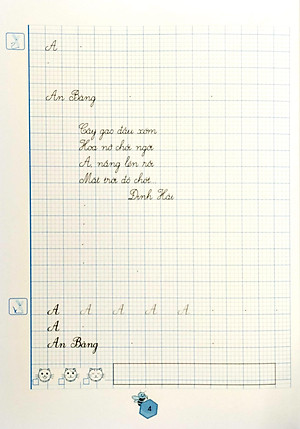 A
An Bang
Cây gạo đầu xóm
Hoa nở chơi ngơi
A, nắng lên rồi
Mặt trời đỏ chót
Định Hải
A A A A A
A
An Bang
4